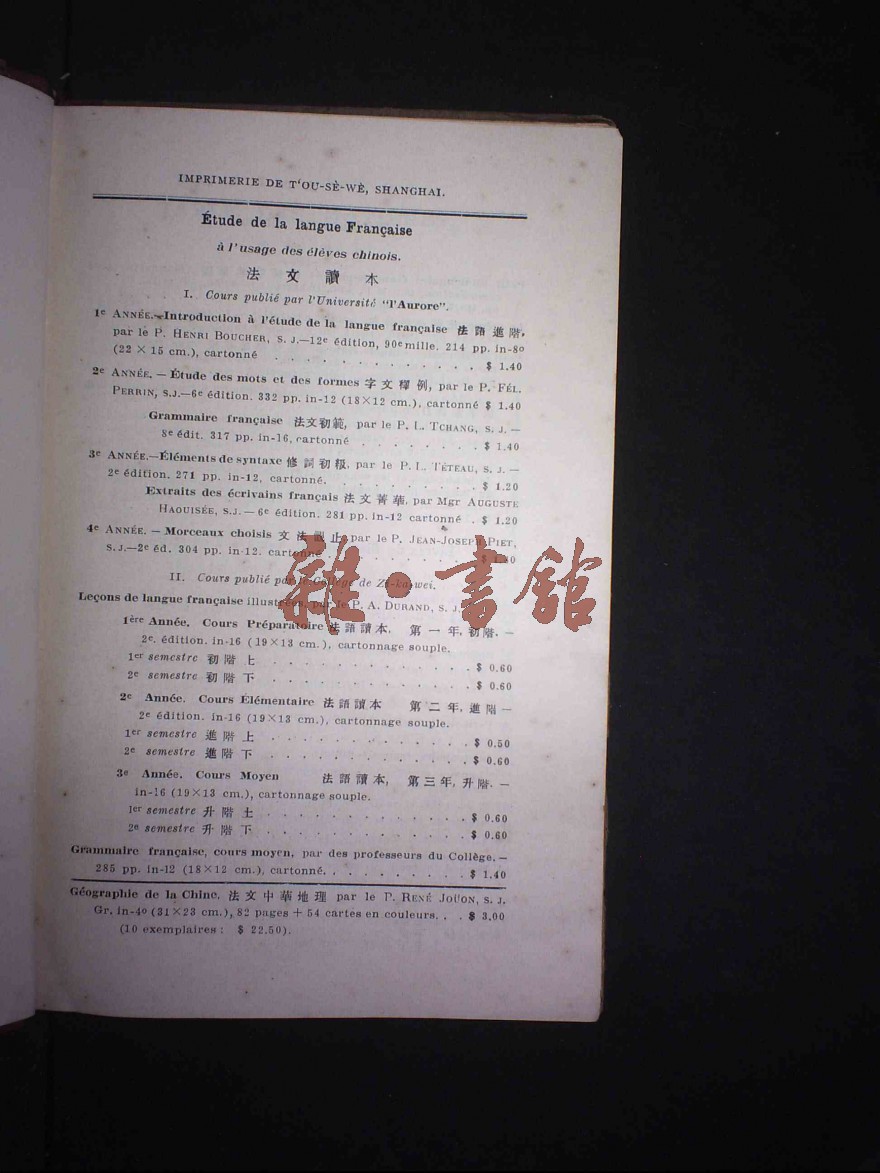 IMPRIMERIE DE T‘OU-SÈ-WÈ, SHANGHAI.
Étude de la langue Française
à l'usage des élèves chinois.
法 文 讀 本
I. Cours publié par l'Université "l'Aurore".
1e ANNÉE.—Introduction à l'étude de la langue française 法 語 進 階,
par le P. HENRI BOUCHER, S. J.—12e édition, 90e mille. 214 pp. in-8o
(22 × 15 cm.), cartonné . . . . . . . . . . . $ 1.40
2e ANNÉE. — Étude des mots et des formes 字 文 釋 例, par le P. FÉL.
PERRIN, S.J.—6e édition. 332 pp. in-12 (18×12 cm.), cartonné $ 1.40
Grammaire française 法文初範, par le P. L. TCHANG, S. J. —
8e édit. 317 pp. in-16, cartonné . . . . . . . $ 1.40
3e ANNÉE.—Éléments de syntaxe 修 詞 初 級, par le P. L. TÉTEAU, S. J. —
2e édition. 271 pp. in-12, cartonné. . . . . . . . $ 1.20
Extraits des écrivains français 法 文 菁 華, par Mgr AUGUSTE
HAOUISÉE, S.J. — 6e édition. 281 pp. in-12 cartonné . $ 1.20
4e ANNÉE. — Morceaux choisis 文 法 觀 止, par le P. JEAN-JOSEPH PIET,
S.J.—2e éd. 304 pp. in-12. cartonné . . . . . . . $
雜·書館
II. Cours publié par le Collège de Zi-ka-wei.
Leçons de langue française illustrées, par le P. A. DURAND, S. J.
1ère Année. Cours Préparatoire 法 語 讀 本, 第 一 年, 初 階. —
2e. édition. in-16 (19×13 cm.), cartonnage souple.
1er semestre 初 階 上 . . . . . . . . . . . . . $ 0.60
2e semestre 初 階 下 . . . . . . . . . . . . . $ 0.60
2e Année. Cours Élémentaire 法 語 讀 本 第 二 年, 進 階 —
2e édition. in-16 (19×13 cm.), cartonnage souple.
1er semestre 進 階 上 . . . . . . . . . . . . . $ 0.50
2e semestre 進 階 下 . . . . . . . . . . . . . $ 0.60
3e Année. Cours Moyen 法 語 讀 本, 第 三 年, 升 階. —
in-16 (19×13 cm.), cartonnage souple.
1er semestre 升 階 上 . . . . . . . . . . . . . $ 0.60
2e semestre 升 階 下 . . . . . . . . . . . . . $ 0.60
Grammaire française, cours moyen, par des professeurs du Collège. —
285 pp. in-12 (18×12 cm.), cartonné. . . . . . . . $ 1.40
Géographie de la Chine. 法 文 中 華 地 理 par le P. RENÉ JOÜON, S. J.
Gr. in-4o (31×23 cm.), 82 pages + 54 cartes en couleurs. . . $ 3,00
(10 exemplaires : $ 22.50).